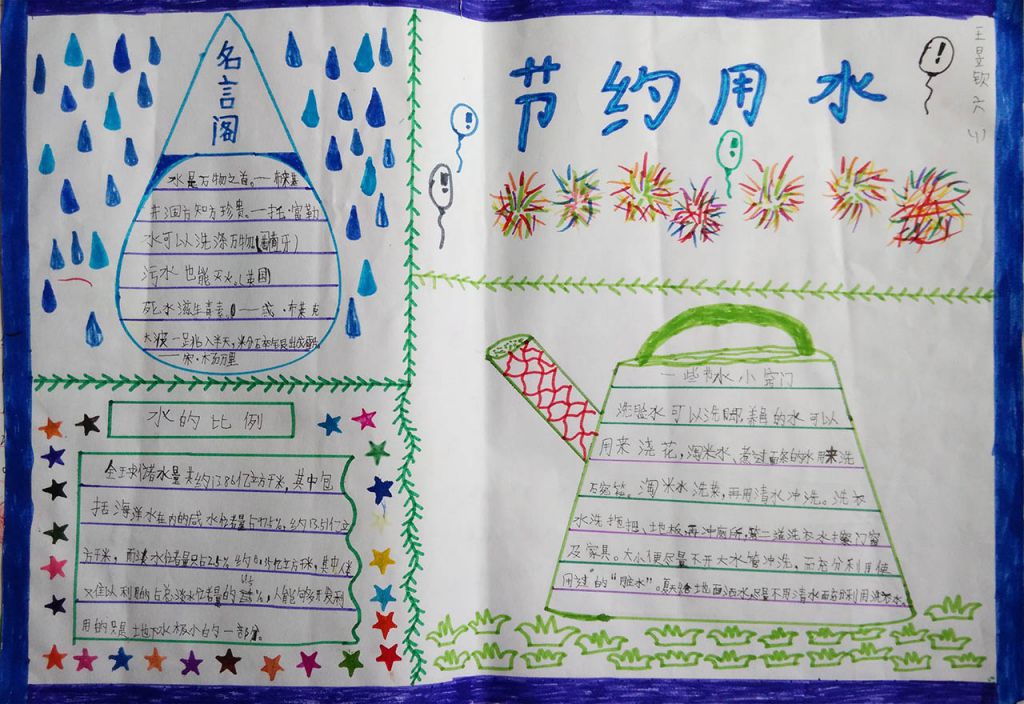 名言阁
水是万物之首。——布莱基
井涸方知方珍贵.——托·富勒
水可以洗涤万物(葡萄牙)
污水也能灭火.(英国)
死水滋生毒素。——威·布莱克
节约用水
王昱钦 六(1)
水的比例
全球储水量约13.86亿立方千米,其中包
括海洋水在内的咸水储量占97.5%,约13.51亿立
方千米,而淡水储量只占2.5%,约0.35亿立方千米,其中人类
难以利用的占总淡水储量的 %,人能够开发利
用的只是地下水极小的一部分.
一些节水小窍门
洗脸水可以洗脚,养鱼的水可以
用来浇花,淘米水、煮过面条的水用来洗
碗筷。淘米水洗菜,再用清水冲洗。洗衣
水洗拖把、地板,再冲厕所,第二道洗衣水擦门窗
及家具。大小便尽量不开大水管冲洗,而充分利用使
用过"的"脏水"。夏天给地面洒水尽量不用清水而利用洗衣水.